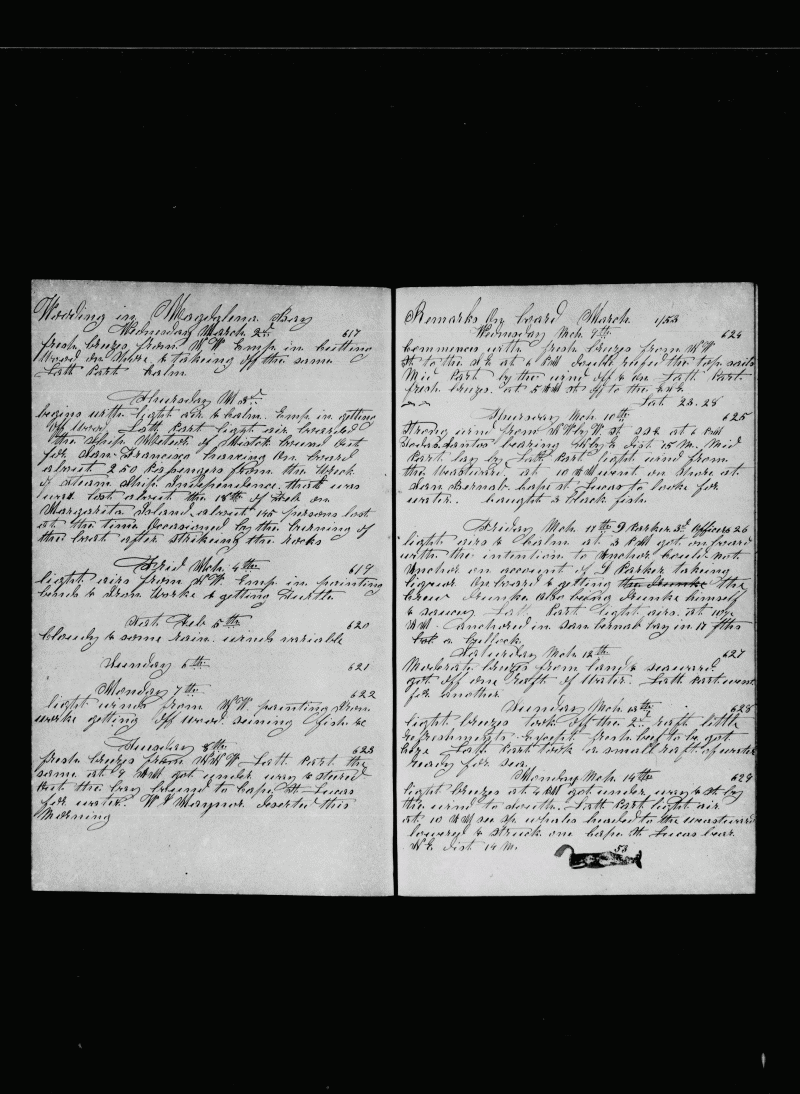 Wooding in Magdalena Bay
Wednesday March 2d 617
fresh breezes from N W Emp. in cutting
Wood on Shore & takeing off the same
Latt Part calm
Thursday M 3d
begins with light air & calm. Emp in getting
off Wood. Latt Part light air boarded
the Ship Meteor of Mistick bound Out
for San Francisco haveing On board
about 250 Pasengers from the Wreck
of Steam Ship Independence. that was
was lost about the 18th of Feb on
Margarita Island. about 145 persons lost
at the time Occasioned by the burning of
the boat after strikeing the rocks
Frid Mch. 4th 619
light airs from N W. Emp. in painting
bends & Iron Worke & getting Turtle
Sat Feb 5th 620
cloudy & some rain. winds variable
Sunday 6th 621
Monday 7th 622
light winds from N W. painting Iron
worke getting off wood. seining fish &c
Tuesday 8th 623
fresh breezes from N N W. Latt Part the
same at 9 AM got under way & steired
Out the bay bound to Cape St Lucas
for water. W P Maynor deserted this
Morning
Remarks On board March 1/53
Wednsday Mch 9th 624
Commences with fresh breezes from N W
St to the S E at 6 PM double reefed the top sails
Mid Part by the wind Off & On Latt Part
fresh breezes. at 5 AM St off to the
Lat 23.28
Thursday Mch 10th 625
Strong wind from W N W St SSE at 6 PM
Todas Santos bearing dist 15 M. Mid
Part lay by Latt Part light wind from
the Westward at 10 AM went on Shore at
San Bernab cape St Lucas to look for
water. caught 3 black fish
Friday Mch 11th J Parker 3d Officer 626
light airs & calm at 3 PM got on board
with the intention to Anchor could not
Anchor on account of J Parker takeing
liquor On board & getting the Drunke the
crew drunke also being drunke himself
& saucy Latt Part light airs. at 10
AM anchored in San bernab bay in 17 fths
Saturday Mch 12th 627
Moderate breezes from land & seaward
got Off One raft of Water. Latt Part went
for another
Sunday Mch 13th 628
light breezes took off the 2d raft little
refreshments Except fresh beef to be got
here Latt Part took a small raft of water
ready for sea
Monday Mch 14th 629
light breezes at 4 PM got under way & St by
the wind to South. Latt Part light air
at 10 AM see sp whales headed to the westward
lowered & struck one Cape St Lucas bear
N E dist 14 M.
53